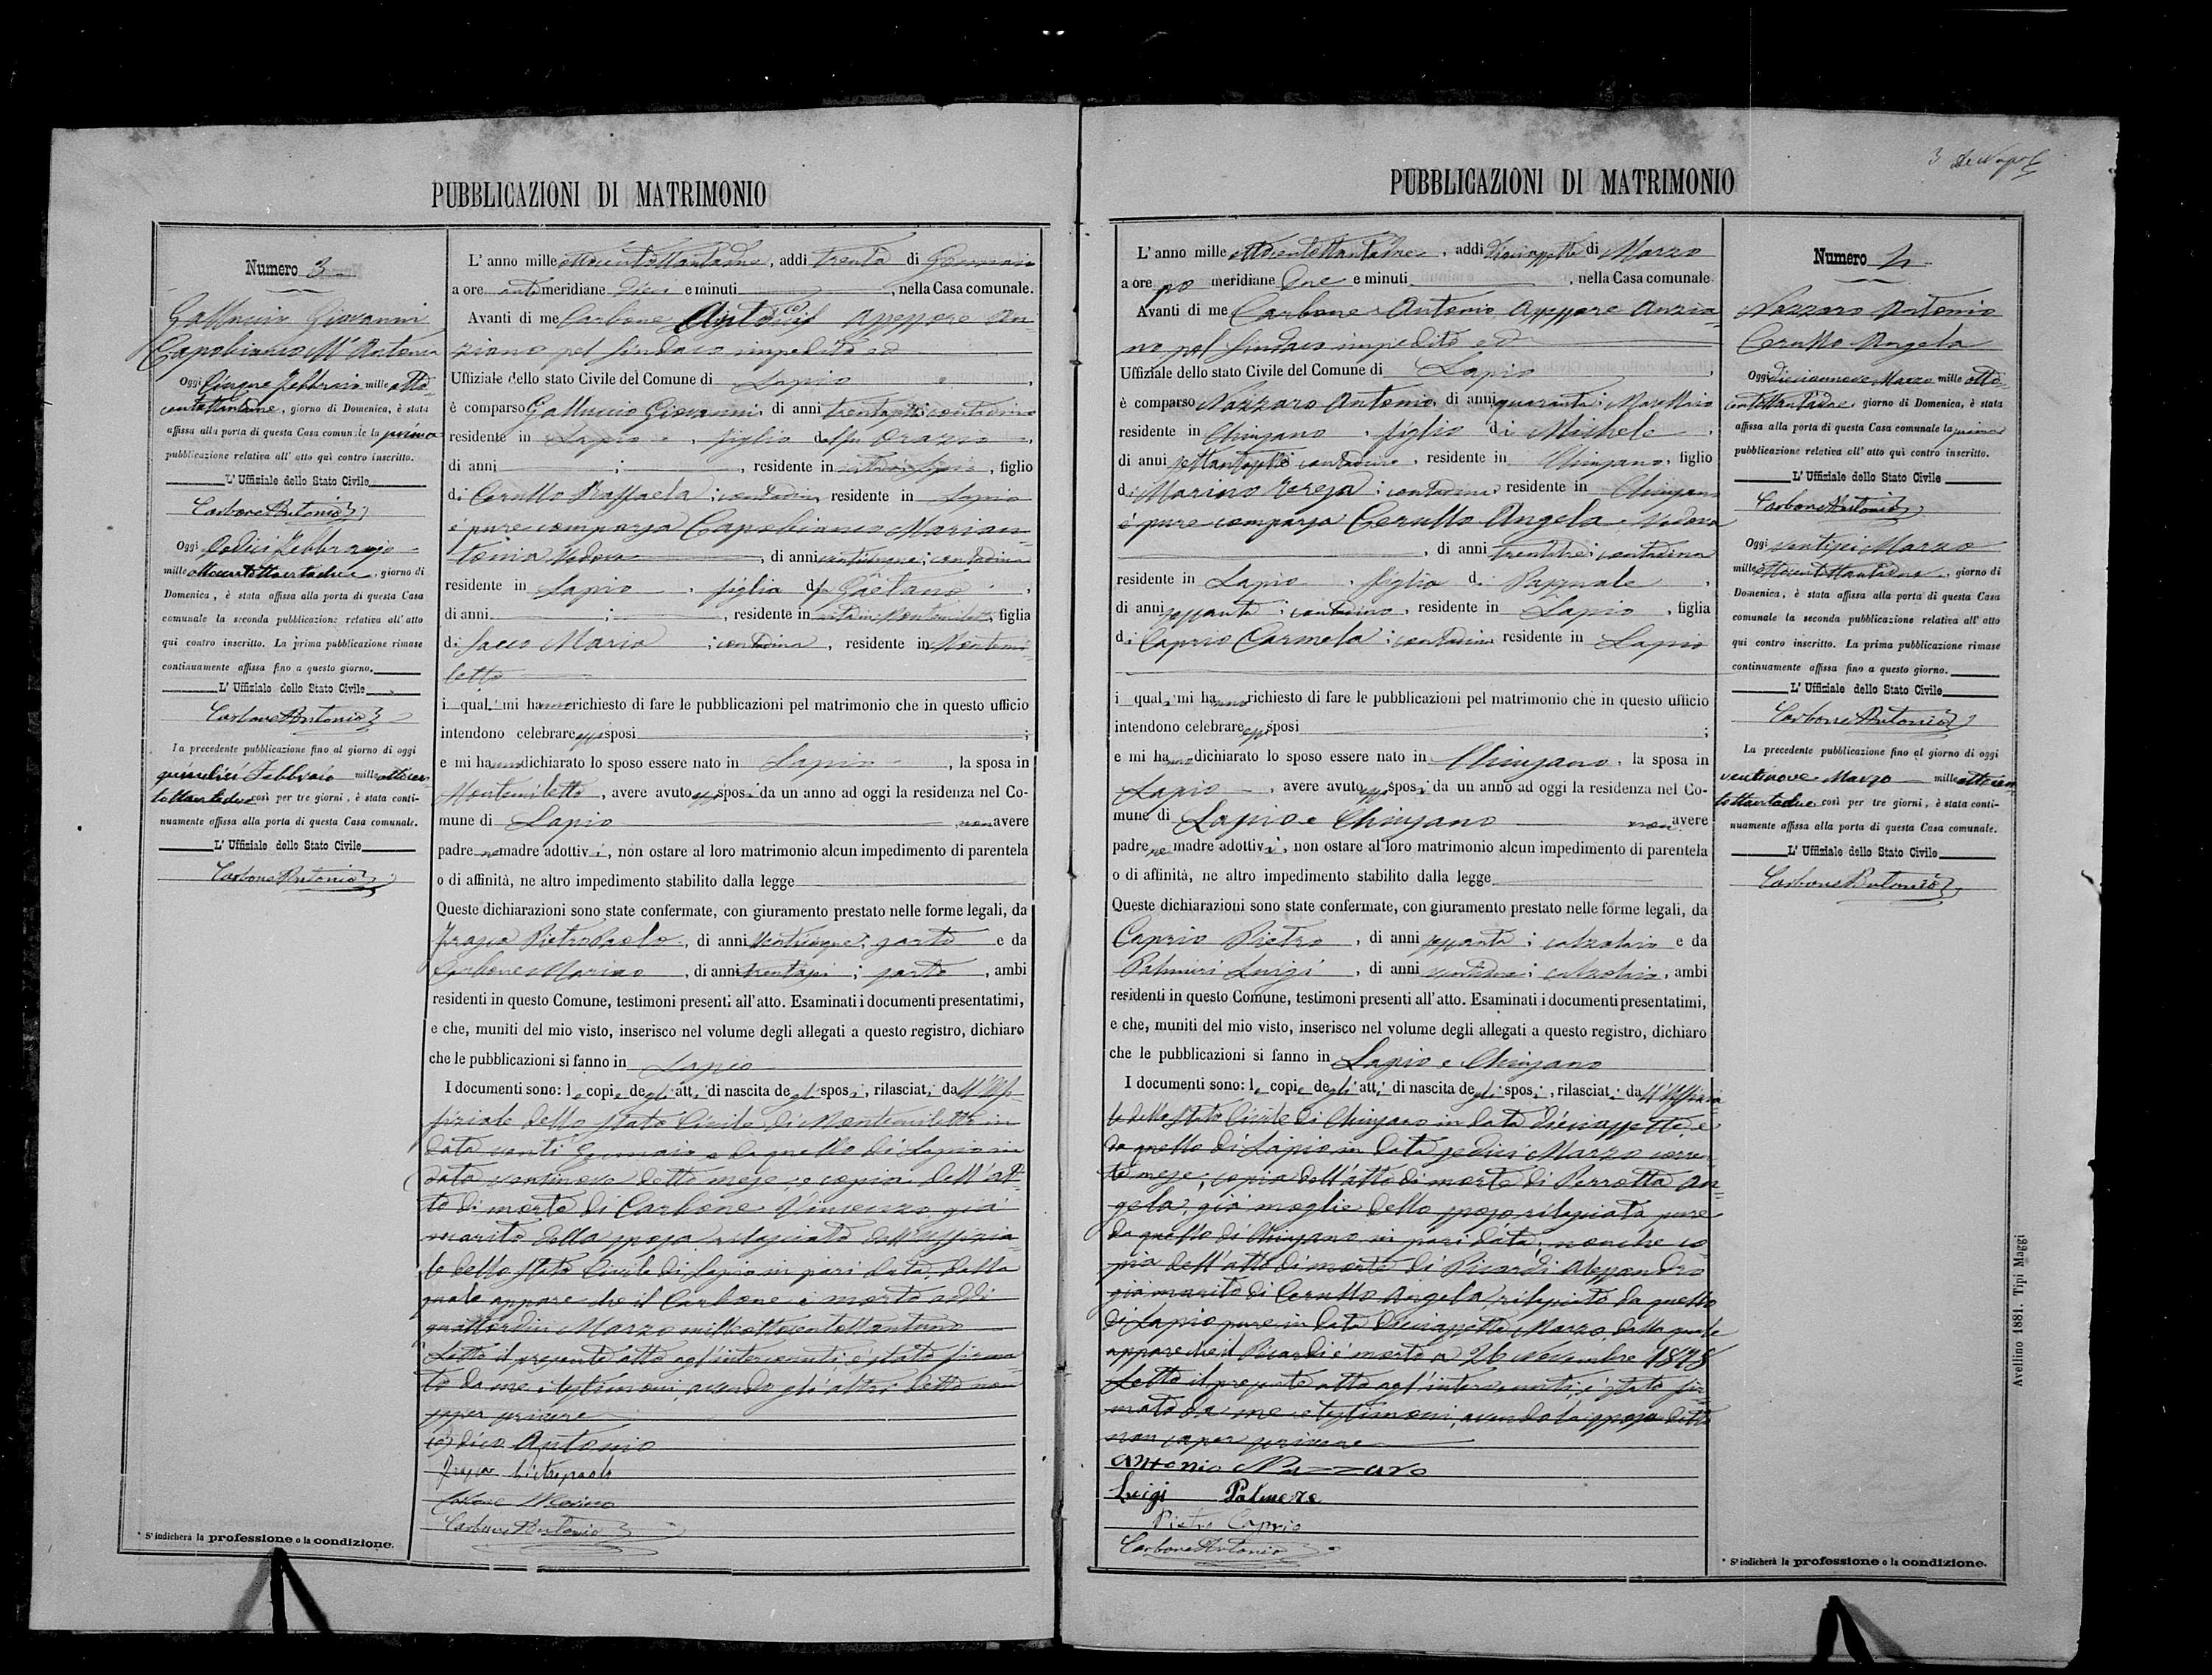 3 De Napoli
PUBBLICAZIONI DI MATRIMONIO
Numero 3
Galluccio Giovanni
Capobianco Mª Antonia
Oggi Cinque Febbraio mille otto
centottantadue, giorno di Domenica, è stata
affissa alla porta di questa Casa comunale la prima
pubblicazione relativa all' atto quì contro inscritto.
L' Uffiziale dello Stato Civile
Carbone Antonio
Oggi Dodici Febbraio
mille ottocentottantadue, giorno di
Domenica, è stata affissa alla porta di questa Casa
comunale la seconda pubblicazione relativa all' atto
qui contro inscritto. La prima pubblicazione rimase
continuamente affissa fino a questo giorno.
L' Uffiziale dello Stato Civile
Carbone Antonio
La precedente pubblicazione fino al giorno di oggi
quindici Febbraio mille ottocen
tottantadue così per tre giorni, è stata conti-
nuamente affissa alla porta di questa Casa comunale.
L' Uffiziale dello Stato Civile
Carbone Antonio
* S' indicherà la professione o la condizione.
L' anno mille ottocentottantadue, addì trenta di Gennaio
a ore anti meridiane dieci e minuti, nella Casa comunale.
Avanti di me Carbone Assessore An-
ziano pel Sindaco impedito ed
Uffiziale dello stato Civile del Comune di Lapio,
è comparso Galluccio Giovanni, di anni contadino
residente in Lapio, figlio del fu Orazio,
di anni ; , residente in , figlio
di Cerullo Raffaela ; contadina, residente in Lapio
è pure comparsa Capobianco Marian-
tonia Vedova, di anni venticinque ; contadina
residente in Lapio, figlia del fu Gaetano,
di anni ; , residente in Montemiletto, figlia
di Sacco Maria ; contadina, residente in Montemi-
letto
i quali mi hanno richiesto di fare le pubblicazioni pel matrimonio che in questo ufficio
intendono celebrare essi sposi ;
e mi hanno dichiarato lo sposo essere nato in Lapio, la sposa in
Montemiletto, avere avuto essi sposi da un anno ad oggi la residenza nel Co-
mune di Lapio non avere
padre ne madre adottivi, non ostare al loro matrimonio alcun impedimento di parentela
o di affinità, ne altro impedimento stabilito dalla legge
Queste dichiarazioni sono state confermate, con giuramento prestato nelle forme legali, da
PietroPaolo, di anni venticinque ; sarto e da
Carbone Marino, di anni trentasei ; sarto, ambi
residenti in questo Comune, testimoni presenti all'atto. Esaminati i documenti presentatimi,
e che, muniti del mio visto, inserisco nel volume degli allegati a questo registro, dichiaro
che le pubblicazioni si fanno in Lapio
I documenti sono: le copie degli atti di nascita degli sposi, rilasciati dall'Uf-
fiziale dello Stato Civile di Montemiletto in
data venti Gennaio e da quello di Lapio in
data ventinove detto mese ; e copia dell'at-
to di morte di Carbone Vincenzo già
marito della sposa rilasciato dall'Uffizia-
le dello Stato Civile di Lapio in pari data, dalla
quale appare che il Carbone è morto addì
quattordici Marzo milleottocentottantuno
Letto il presente atto agl'intervenuti è stato firma-
to da me e testimoni, avendo gli altri detto non
saper scrivere
(a) dico Antonio
Pietropaolo
Carbone Marino
Carbone Antonio
PUBBLICAZIONI DI MATRIMONIO
L' anno mille ottocentottantadue, addì diciassette di Marzo
a ore po meridiane due e minuti, nella Casa comunale
Avanti di me Carbone Antonio Assessore Anzia-
no pel Sindaco impedito ed
Uffiziale dello stato Civile del Comune di Lapio,
è comparso Nazzaro Antonio, di anni quaranta ;
residente in Chiusano, figlio di Michele,
di anni settantasette contadino, residente in Chiusano, figlio
di Marino Teresa ; contadina, residente in Chiusano
è pure comparsa Cerullo Angela Vedova
, di anni trentatre ; contadina
residente in Lapio, figlia di Pasquale,
di anni sessanta ; contadino, residente in Lapio, figlia
di Caprio Carmela ; contadina residente in Lapio
i quali mi hanno richiesto di fare le pubblicazioni pel matrimonio che in questo ufficio
intendono celebrare essi sposi ;
e mi hanno dichiarato lo sposo essere nato in Chiusano, la sposa in
Lapio, avere avuto essi sposi da un anno ad oggi la residenza nel Co-
mune di Lapio e Chiusano non avere
padre ne madre adottivi, non ostare al loro matrimonio alcun impedimento di parentela
o di affinità, ne altro impedimento stabilito dalla legge
Queste dichiarazioni sono state confermate, con giuramento prestato nelle forme legali, da
Caprio Pietro, di anni sessanta ; calzolaio e da
Palmieri Luigi, di anni ventidue ; calzolaio, ambi
residenti in questo Comune, testimoni presenti all'atto. Esaminati i documenti presentatimi,
e che, muniti del mio visto, inserisco nel volume degli allegati a questo registro, dichiaro
che le pubblicazioni si fanno in Lapio e Chiusano
I documenti sono: le copie degli atti di nascita degli sposi, rilasciati dall'Uffizia-
le dello Stato Civile di Chiusano in data diciassette, e
da quello di Lapio in data sedici Marzo corren-
te mese ; copia dell'atto di morte di Perrotta An-
gela, già moglie dello sposo rilasciata pure
da quello di Chiusano in pari data ; nonche co-
pia dell'atto di morte di Picardi Alessandro
già marito di Cerullo Angela, rilasciato da quello
di Lapio pure in data diciassette Marzo, dalla quale
appare che il Picardi è morto a 26 Novembre 1878
Letto il presente atto agl'intervenuti, è stato fir-
mato da me e testimoni, avendo la sposa detto
non saper scrivere
Antonio Nazzaro
Luigi Palmere
Pietro Caprio
Carbone Antonio
Numero 4
Nazzaro Antonio
Cerullo Angela
Oggi diciannove Marzo mille otto-
centottantadue, giorno di Domenica, è stata
affissa alla porta di questa Casa comunale la prima
pubblicazione relativa all' atto quì contro inscritto.
L' Uffiziale dello Stato Civile
Carbone Antonio
Oggi ventisei Marzo
mille ottocentottantadue, giorno di
Domenica, è stata affissa alla porta di questa Casa
comunale la seconda pubblicazione relativa all' atto
qui contro inscritto. La prima pubblicazione rimase
continuamente affissa fino a questo giorno.
L' Uffiziale dello Stato Civile
Carbone Antonio
La precedente pubblicazione fino al giorno di oggi
ventinove Marzo mille ottocen
tottantadue così per tre giorni, è stata conti-
nuamente affissa alla porta di questa Casa comunale.
L' Uffiziale dello Stato Civile
Carbone Antonio
* S' indicherà la professione o la condizione.
Avellino 1881. Tipi Maggi